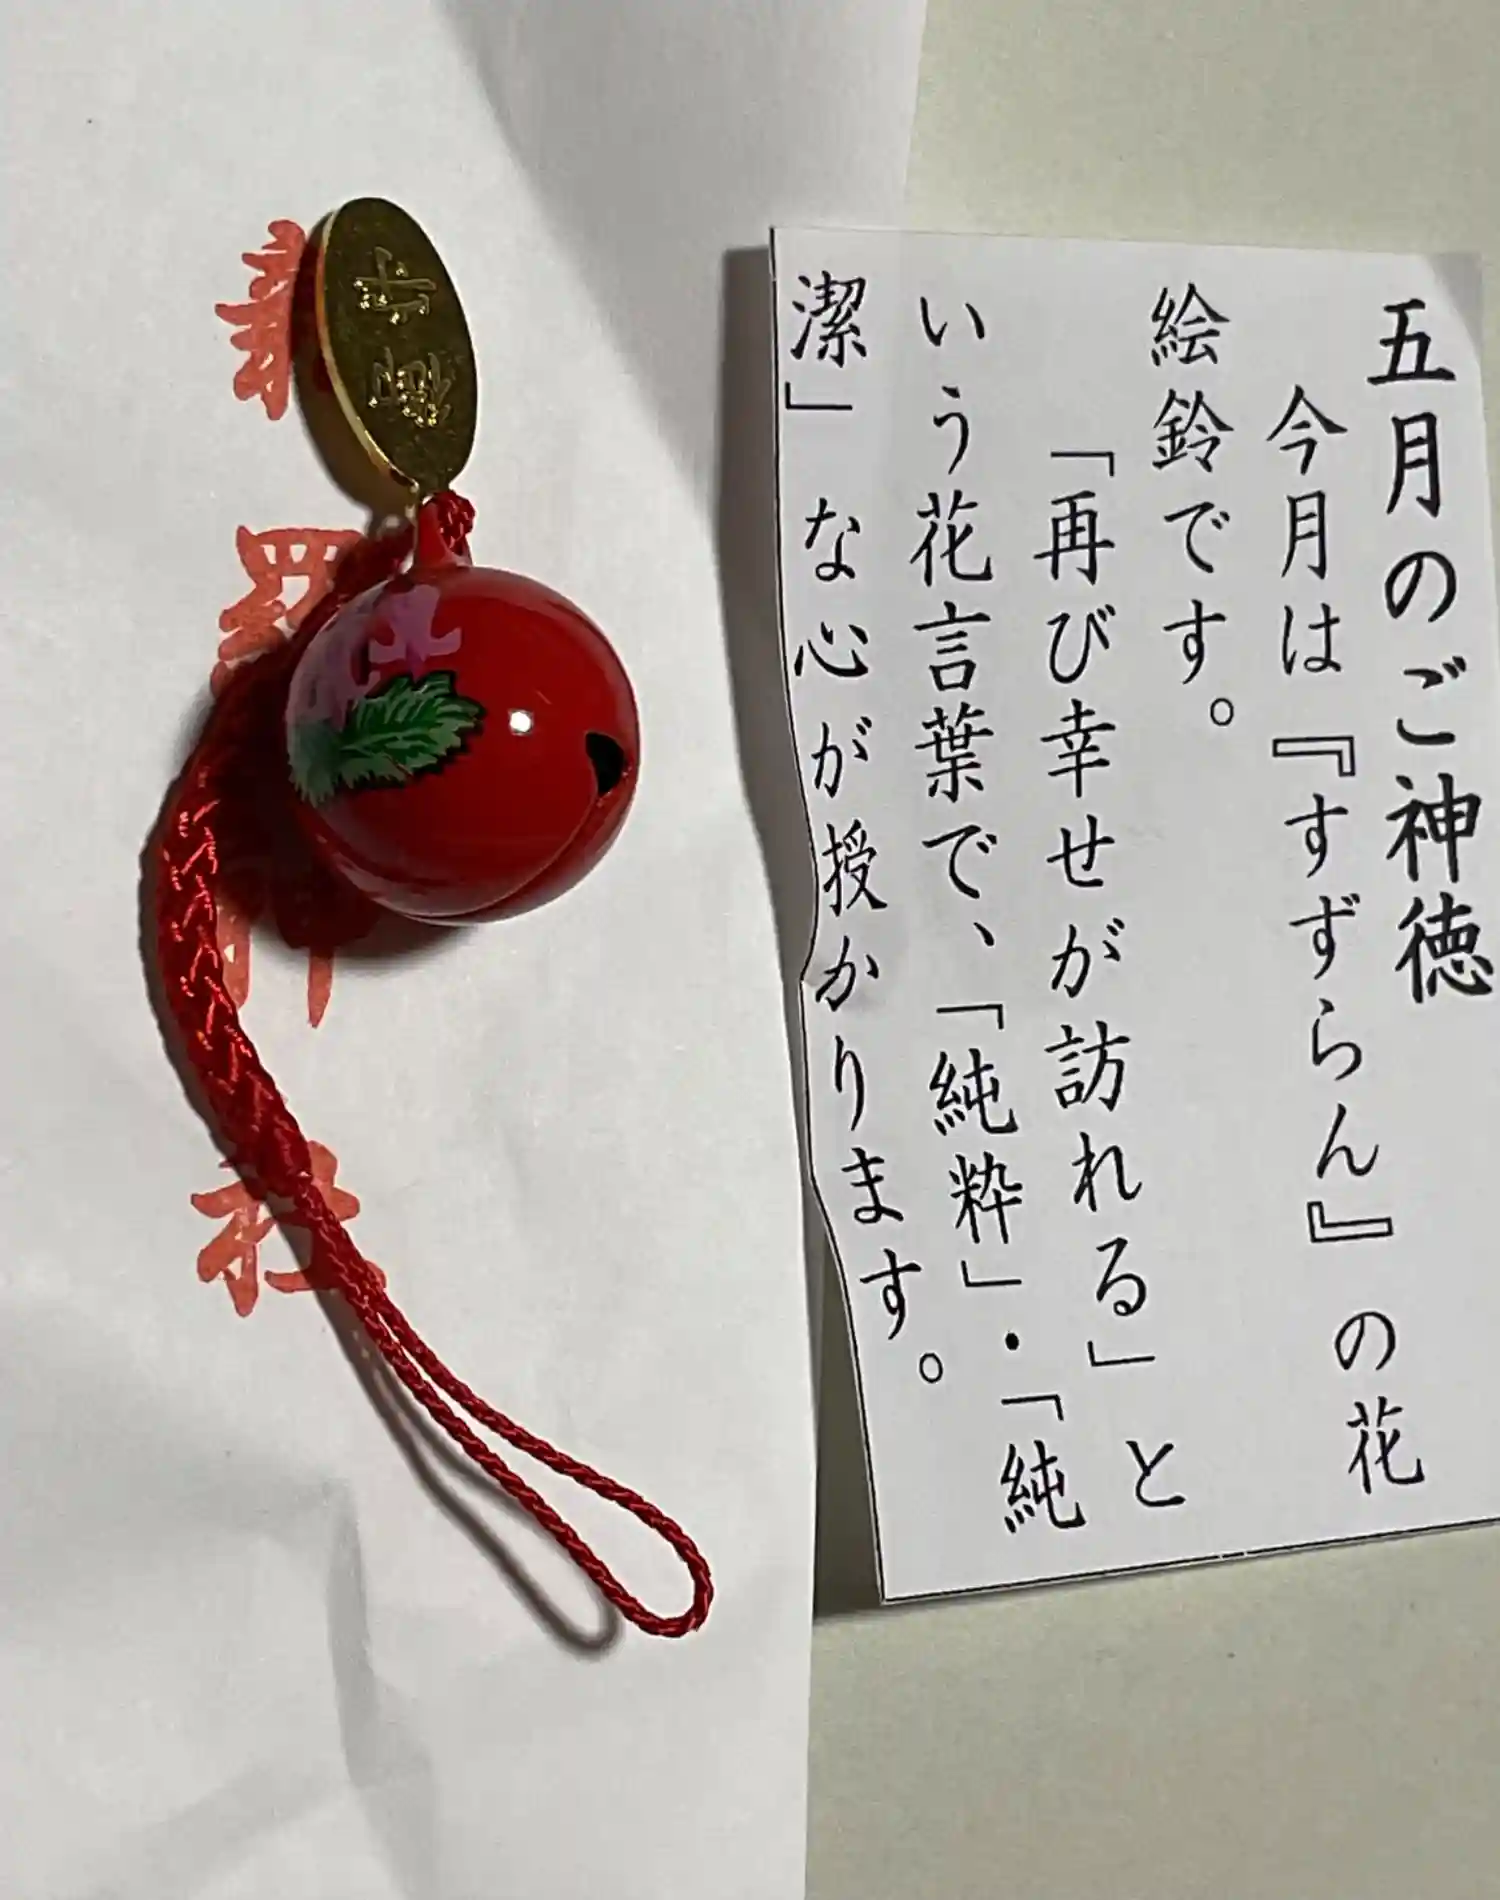 五月のご神徳
今月は『すずらん』の花
絵鈴です。
「再び幸せが訪れる」と
いう花言葉で、「純粋」・「純
潔」な心が授かります。
社